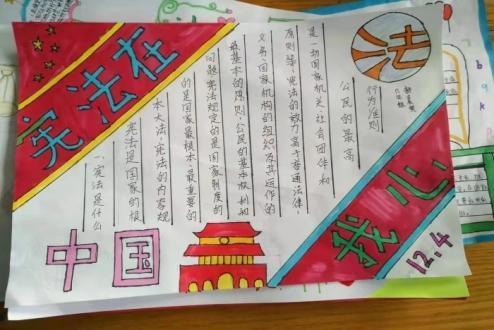 宪法在
我心
法
一、宪法是什么
宪法是国家的根
本大法,宪法的内容规
的是国家最根本,最重要的
问题宪法规定的是国家制度的
最基本的原则,公民的基本权利和
义务,国家机构的组织及其运作的
原则等,宪法的效力高于普通法律,
是一切国家机关,社会团体和
公民的最高
行为准则
中国
12.4